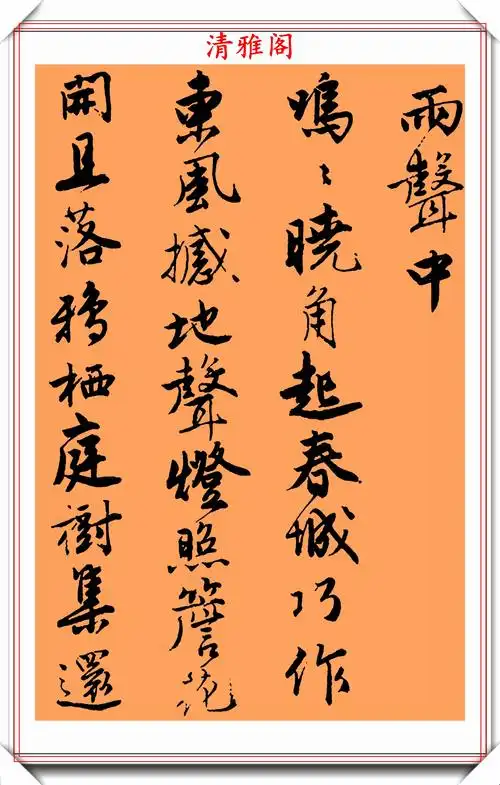 清雅阁
雨聲中
嗚〻曉角起春城巧作
東風撼地聲燈照簷花
開且落鴉栖庭樹集還